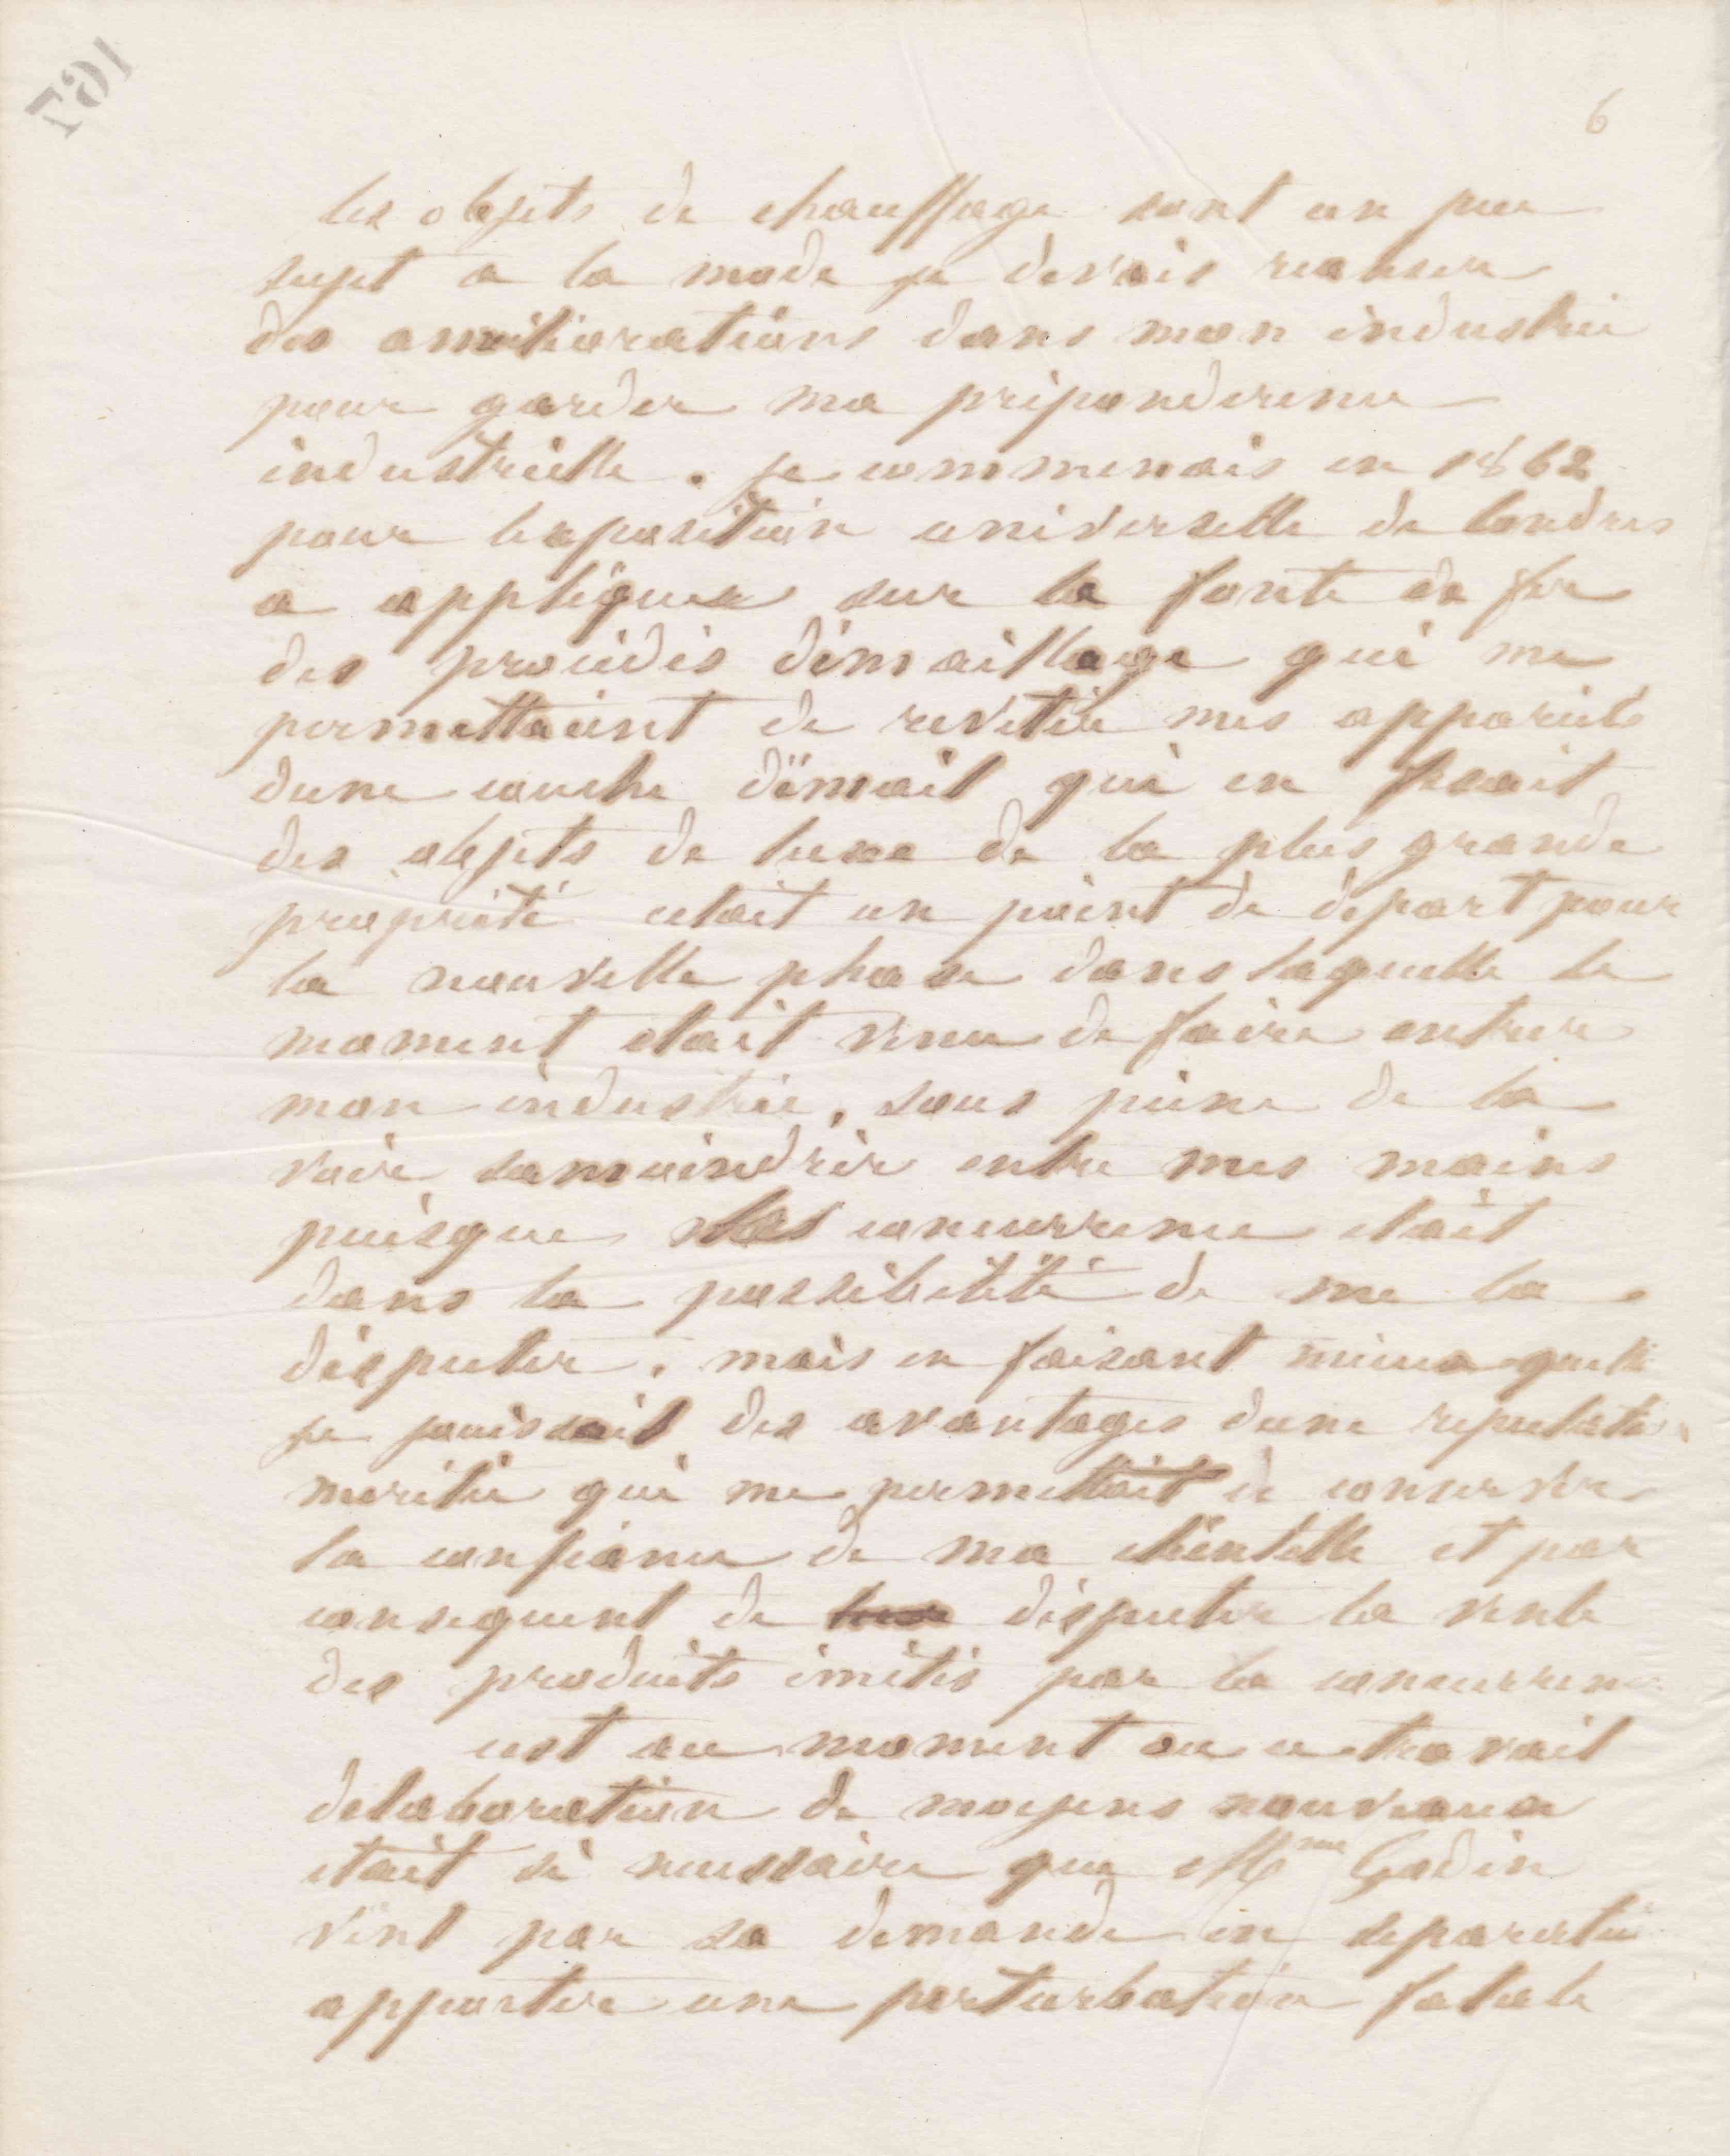 167
6
les objets de chauffage sont un peu
sujet a la mode je devais realiser
des ameliorations dans mon industrie
pour garder ma préponderence
industrielle. je commencais en 1862
pour lexposition universelle de londres
a appliquer sur la fonte de fer
des procédés démaillage qui me
permettaient de revetir mes appareils
dune couche démail qui en fesait
des objets de luxe de la plus grande
propriété cetait un point de départ pour
la nouvelle phase dans laquelle le
moment etait venu de faire entrer
mon industrie, sous peine de la
voir samoindrir entre mes mains
puisque la concurrence etait
dans la possibilité de me la
disputer. mais en faisant mieux quelle
je jouissait des avantages dune reputation
meritée qui me permettait de conserver
la confiance de ma clientelle et par
consequent de disputer la vente
des produits imités par la concurrence
cest au moment ou ce travail
delaboration de moyens nouveaux
etait si necessaire que Mme Godin
vint par sa demande en separation
apporter une perturbation fatale